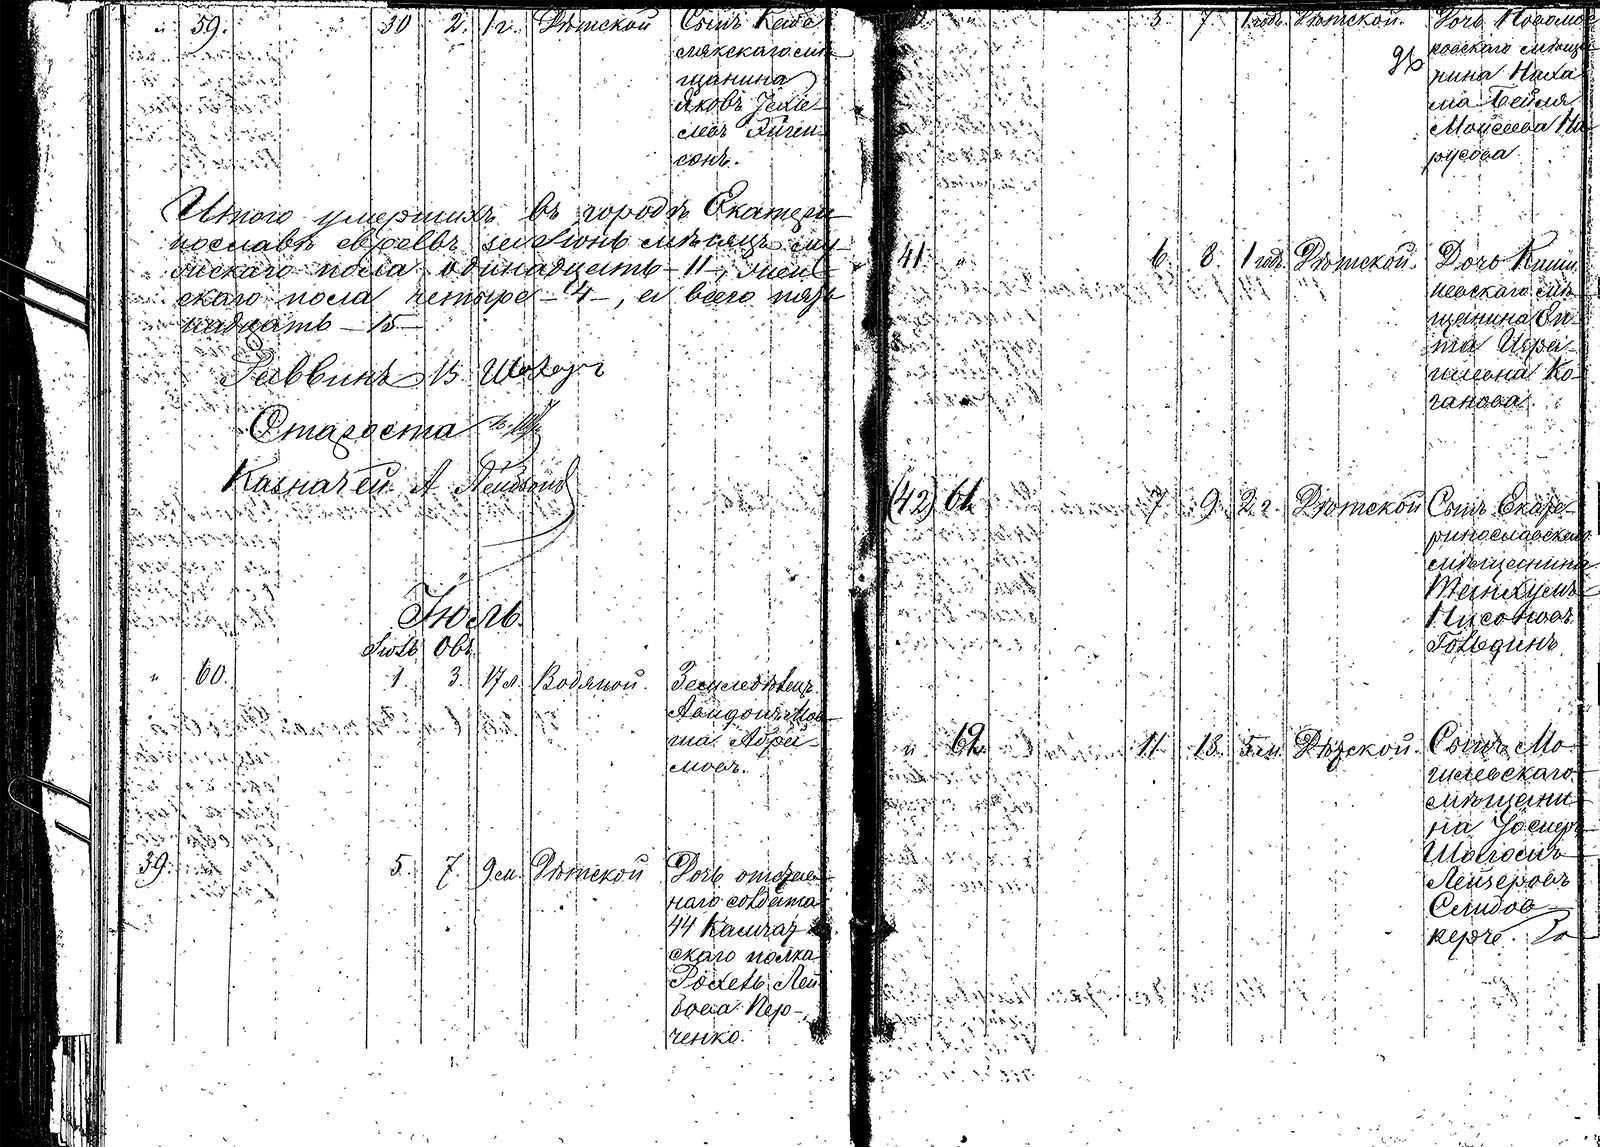 " 59. 30 2. 1 г. Дѣтской Сынъ Кобе
лякскаго мѣ
щанина
Яковъ Хехіе
левъ Эйген
сонъ.
Итого умершихъ въ городѣ Екатери
нославѣ евреевъ за Іюнь мѣсяцъ му
жскаго пола одинадцать - 11 -, жен
скаго пола четыре - 4 -, а всего пят
надцать - 15 -
Раввинъ В. Шахоръ
Староста
Казначей А
Іюль.
Іюль Овъ
" 60. 1. 3. 17 л. Водяной. Земледѣлецъ
Мов
ша Абра
мовъ.
39. 5. 7. 9 м. Дѣтской Дочь отстав
наго солдата
44 Камчат
скаго полка
Рохель Лей
бова Пер-
ченко.
40 5 7 1 годъ Дѣтской. Дочь Новомос
ковскаго мѣща
нина Наха
ма Бейля
Моисеева Па
русова
41 " 6. 8. 1 годъ Дѣтской. Дочь Киши
невскаго мѣ
щанина
та Изра
илевна Ко
ганова
(42) 61. 7 9. 2 г. Дѣтской Сынъ Екате
ринославскаго
мѣщанина
Танхумъ
Гольдинъ
" 62. 11 13. 5 м. Дѣтской. Сынъ Мо
гилевскаго
мѣщани
на
Шоломъ
Лейзеровъ